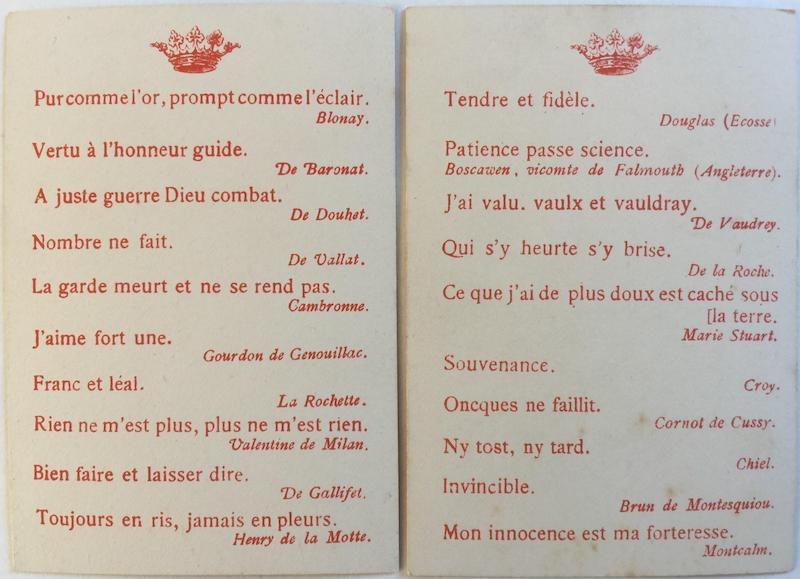 Pur comme l'or, prompt comme l'éclair.
Blonay.
Vertu à l'honneur guide.
De Baronat.
A juste guerre Dieu combat.
De Douhet.
Nombre ne fait.
De Vallat.
La garde meurt et ne se rend pas.
Cambronne.
J'aime fort une.
Gourdon de Genouillac.
Franc et léal.
La Rochette.
Rien ne m'est plus, plus ne m'est rien.
Valentine de Milan.
Bien faire et laisser dire.
De Gallifet.
Toujours en ris, jamais en pleurs.
Henry de la Motte.
Tendre et fidèle.
Douglas (Ecosse)
Patience passe science.
Boscawen, vicomte de Falmouth (Angleterre).
J'ai valu. vaulx et vauldray.
De Vaudrey.
Qui s'y heurte s'y brise.
De la Roche.
Ce que j'ai de plus doux est caché sous
[la terre.
Marie Stuart.
Souvenance.
Croy.
Oncques ne faillit.
Cornot de Cussy.
Ny tost, ny tard.
Chiel.
Invincible.
Brun de Montesquiou.
Mon innocence est ma forteresse.
Montcalm.